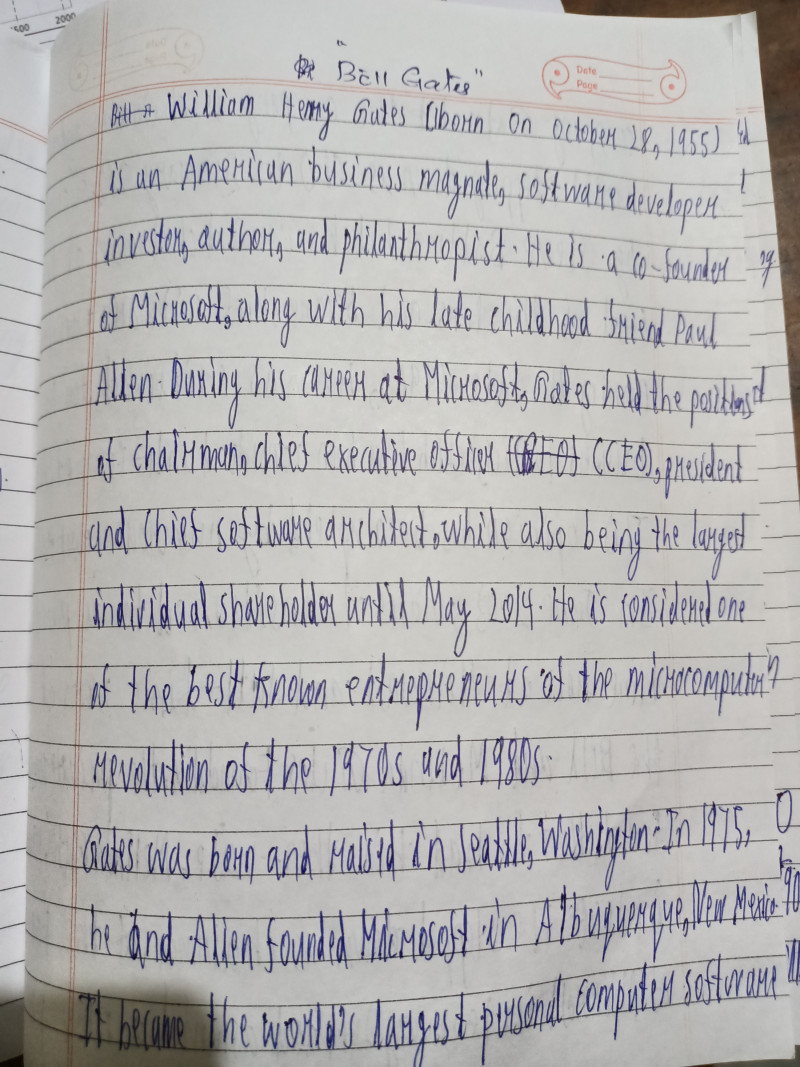 "Bill Gates"
Date
Page
William Henry Gates (born on October 28, 1955)
is an American business magnate, software developer
investor, author, and philanthropist. He is a co-founder
of Microsoft, along with his late childhood friend Paul
Allen. During his career at Microsoft, Gates held the positions
of chairman, chief executive officer (CEO), president
and chief software architect, while also being the largest
individual shareholder until May 2014. He is considered one
of the best known entrepreneurs of the microcomputer
revolution of the 1970s and 1980s.
Gates was born and raised in Seattle, Washington. In 1975,
he and Allen founded Microsoft in Albuquerque, New Mexico.
It became the world's largest personal computer software
500 2000